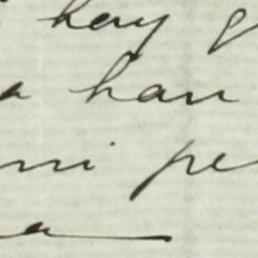 hay
a han
mi pe
a